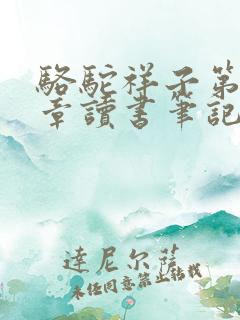 駱駝祥子第
章讀書筆記
達尼尔薩
未经同意禁止转载